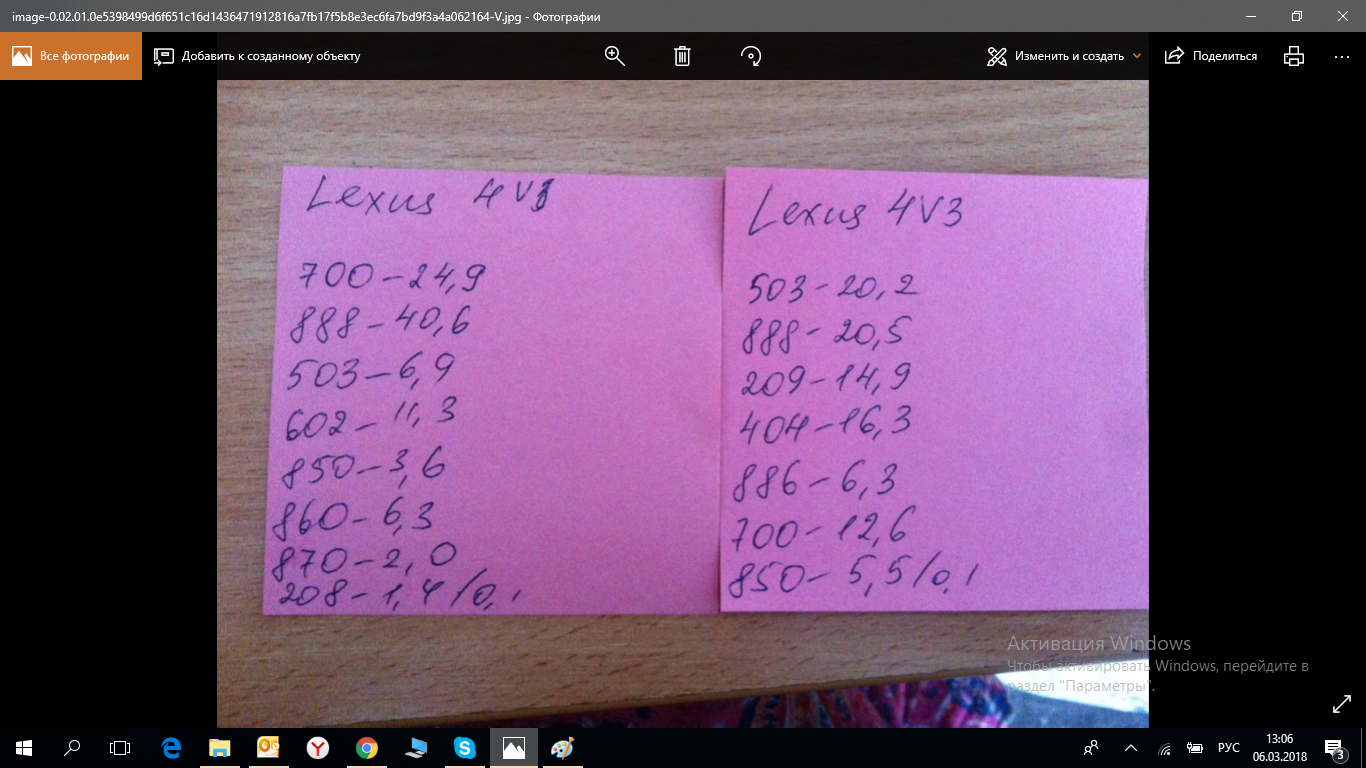 image-0.02.01.0e5398499d6f651c16d1436471912816a7fb17f5b8e3ec6fa7bd9f3a4a062164-V.jpg - Фотографии
Все фотографии
Добавить к созданному объекту
Изменить и создать
Поделиться
Lexus 4V3
700-24,9
888-40,6
503-6,9
602-11,3
850-3,6
860-6,3
870-2,0
208-1,4/0,1
Lexus 4V3
503-20,2
888-20,5
209-14,9
404-16,3
886-6,3
700-12,6
850-5,5/0,1
Активация Windows
Чтобы активировать Windows, перейдите в
раздел "Параметры".
РУС
13:06
06.03.2018
3